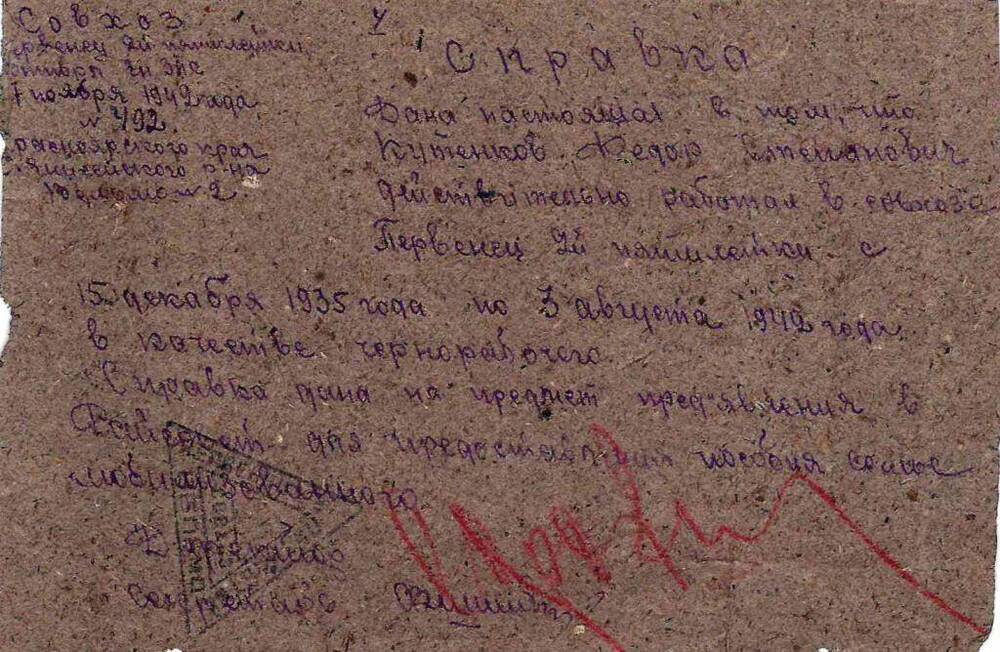 Совхоз
рвенец 2й пятилетки
7 ноября 1942 года
№ 492.
расноярского края
р-на
№ 2.
Справка
Дана настоящая в том, что
Кутенков Федор Степанович
действительно работал в совхозе
Первенец 2й пятилетки с
15 декабря 1935 года по 3 августа 1942 года
в качестве чернорабочего.
Справка дана на предмет пред'явления в
для предоставления пособия семье
мобилизованного
Секретарь